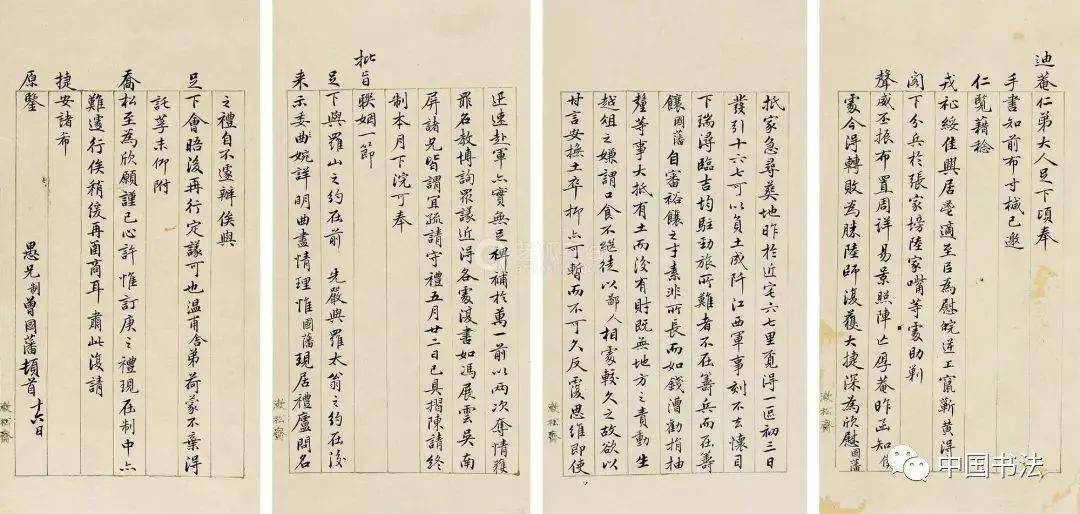 迪菴仁弟大人足下頃奉
手書知前布寸椷已邀
仁覽藉稔
戎祉綏佳興居曼適至以為慰皖逆上竄蘄黃得
閣下分兵於張家塝陸家嘴等處助剿
聲威丕振布置周詳易景照陣亡厚菴昨函知
處今得轉敗為勝陸師復獲大捷深為欣慰國藩
抵家急尋葬地昨於近宅六七里覓得一區初三日
發引十六七可以負土成阡江西軍事刻不去懷目
下瑞得臨吉均駐勁旅所難者不在籌兵而在籌
饟國藩自審裕饟之才素非所長而如錢漕勸捐抽
釐等事大抵有土而後有財既無地方之責動生
越俎之嫌謂口食不繼徒以鄙人相處較久之故欲以
甘言安撫士卒抑亦可暫而不可久反覆思維即使
迅速赴軍亦實無已裨補於萬一前以兩次奪情獲
罪名教博詢眾議近得各處復書如馮展雲吳南
屏諸兄皆謂宜疏請守禮五月廿二日已具摺陳請終
制本月下浣可奉
批旨
聯姻一節
足下與羅山之約在前 先嚴與羅太翁之約在後
來示委曲婉詳明曲盡情理惟國藩現居禮廬問名
之禮自不遽辦俟與
足下會晤後再行定議可也溫甫舍弟荷蒙不棄得
託莩末仰附
喬松至為欣願謹已心許惟訂庚之禮現在制中亦
難遽行俟稍緩再圖商耳 肅此復請
捷安諸希
原鑒 愚兄制曾國藩頓首 十六日
中国书法